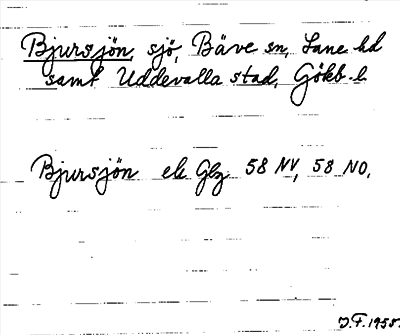 Bjursjön, sjö, Bäve sn, Lane hd
samt Uddevalla stad, Gökb. l.
Bjursjön ek Glz 58 NV, 58 NO.
J.F. 1958.